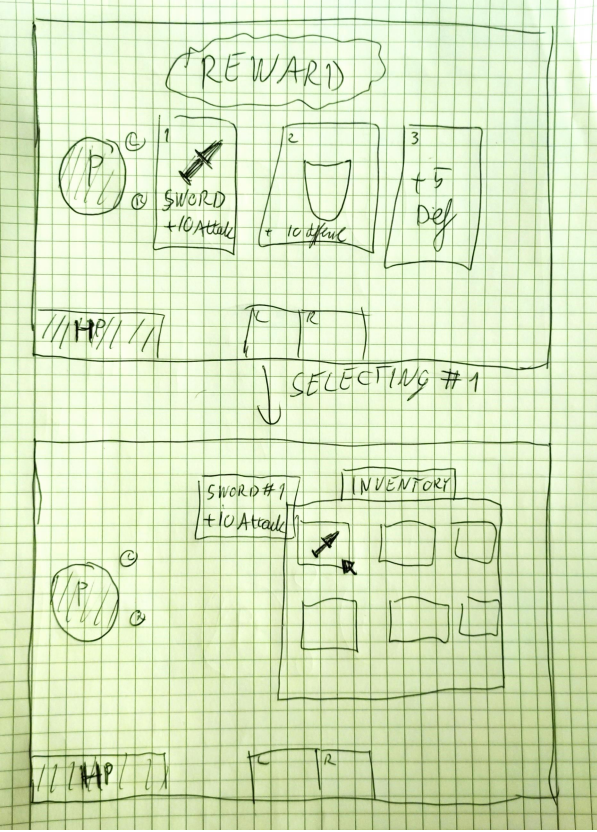 REWARD
P
L
R
1
SWORD
+10 Attack
2
+ 10 defense
3
+5
Def
HP
L
R
SELECTING #1
SWORD#1
+10 Attack
INVENTORY
P
L
R
HP
L
R